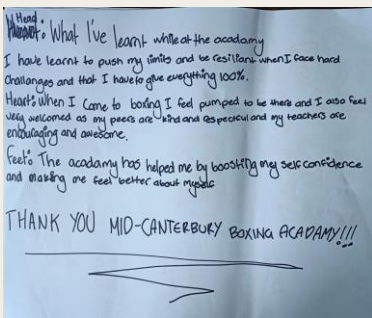 Head
: What I've learnt while at the acadamy
I have learnt to push my limits and be resilliant when I face hard
challanges and that I have to give everything 100%.
Heart: When I come to boxing I feel pumped to be there and I also feel
very welcomed as my peers are kind and respectful and my teachers are
encouraging and awesome.
Feet: The acadamy has helped me by boosting my self confidence
and making me feel better about myself
THANK YOU MID-CANTERBURY BOXING ACADAMY!!!